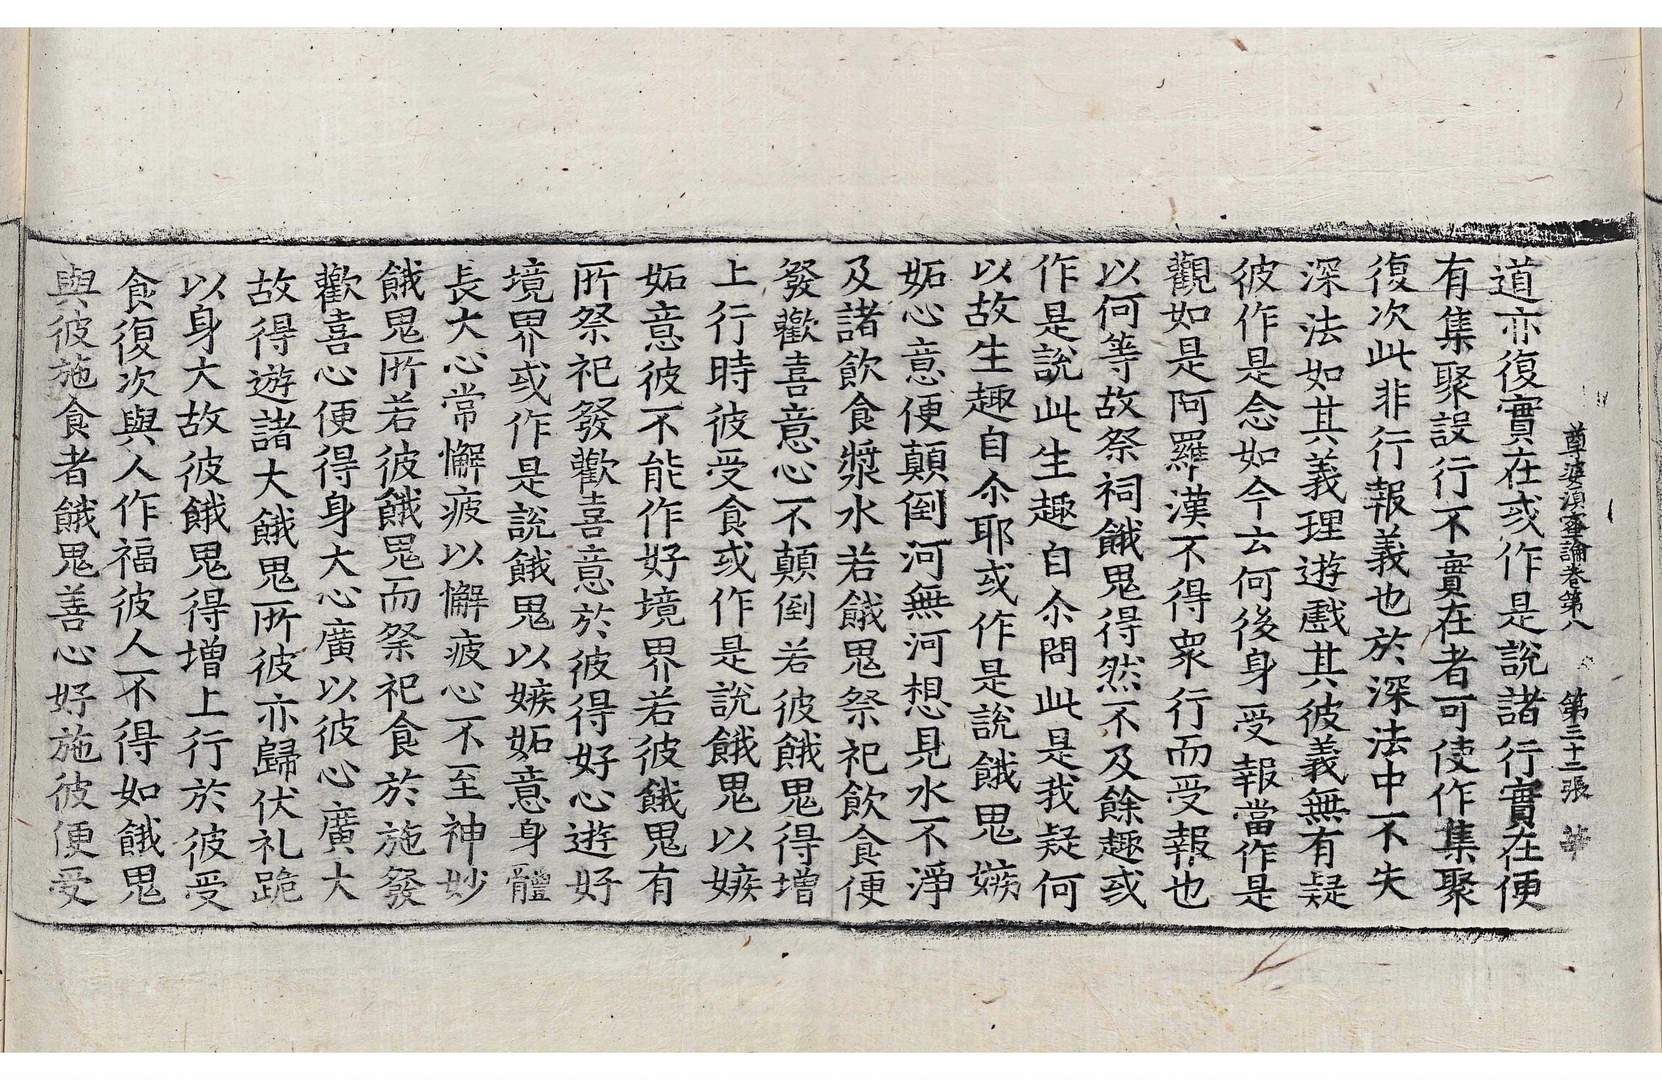 尊婆湏蜜論卷第八　第三十二張　華
道亦復實在或作是說諸行實在便
有集聚設行不實在者可使作集聚
復次此非行報義也於深法中不失
深法如其義理遊戲其彼義無有疑
彼作是念如今云何後身受報當作是
觀如是阿羅漢不得衆行而受報也
以何等故祭祠餓鬼得然不及餘趣或
作是說此生趣自尒問此是我疑何
以故生趣自尒耶或作是說餓鬼嫉
妬心意便顛倒河無河想見水不淨
及諸飲食漿水若餓鬼祭祀飲食便
發歡喜意心不顛倒若彼餓鬼得增
上行時彼受食或作是說餓鬼以嫉
妬意彼不能作好境界若彼餓鬼有
所祭祀發歡喜意於彼得好心遊好
境界或作是說餓鬼以嫉妬意身體
長大心常懈疲以懈疲心不至神妙
餓鬼所若彼餓鬼而祭祀食於施發
歡喜心便得身大心廣以彼心廣大
故得遊諸大餓鬼所彼亦歸伏礼跪
以身大故彼餓鬼得增上行於彼受
食復次與人作福彼人不得如餓鬼
與彼施食者餓鬼善心好施彼便受